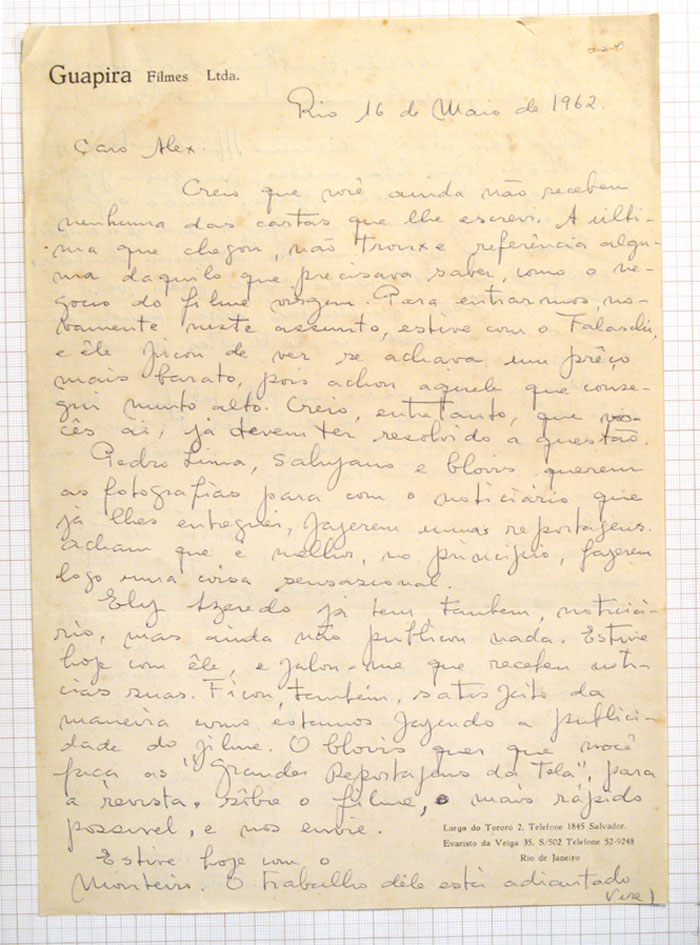 Guapira Filmes Ltda.
Rio 16 de Maio de 1962.
Caro Alex.
Creio que você ainda não recebeu
nenhuma das cartas que lhe escrevi. A últi-
ma que chegou, não trouxe referência algu-
ma daquilo que precisava saber, como o ne-
gocio do filme virgem. Para entrarmos, no-
vamente neste assunto, estive com o Falaschi,
e êle ficou de ver se achava um prêço
mais barato, pois achou aquele que conse-
gui muito alto. Creio, entretanto, que vo-
cês ai, já devem ter resolvido a questão.
Pedro Lima, Salvyano e Clovis querem
as fotografias para com o noticiário que
já lhes entreguei, fazerem umas reportagens.
Acham que é melhor, no principio, fazerem
logo uma coisa sensacional.
Ely Azeredo já tem, tambem, noticiá-
rio, mas ainda não publicou nada. Estive
hoje com êle, e falou-me que recebeu noti-
cias suas. Ficou, também, satisfeito da
maneira como estamos fazendo a publici-
dade do filme. O Clovis quer que você
faça as "Grandes Reportagens da Tela", para
a revista, sôbre o filme, o mais rápido
possivel, e nos envie.
Largo do Tororó 2. Telefone 1845 Salvador.
Evaristo da Veiga 35, S/502 Telefone 52-9248
Rio de Janeiro
Estive hoje com o
Monteiro. O trabalho dêle está adiantado
Vire)